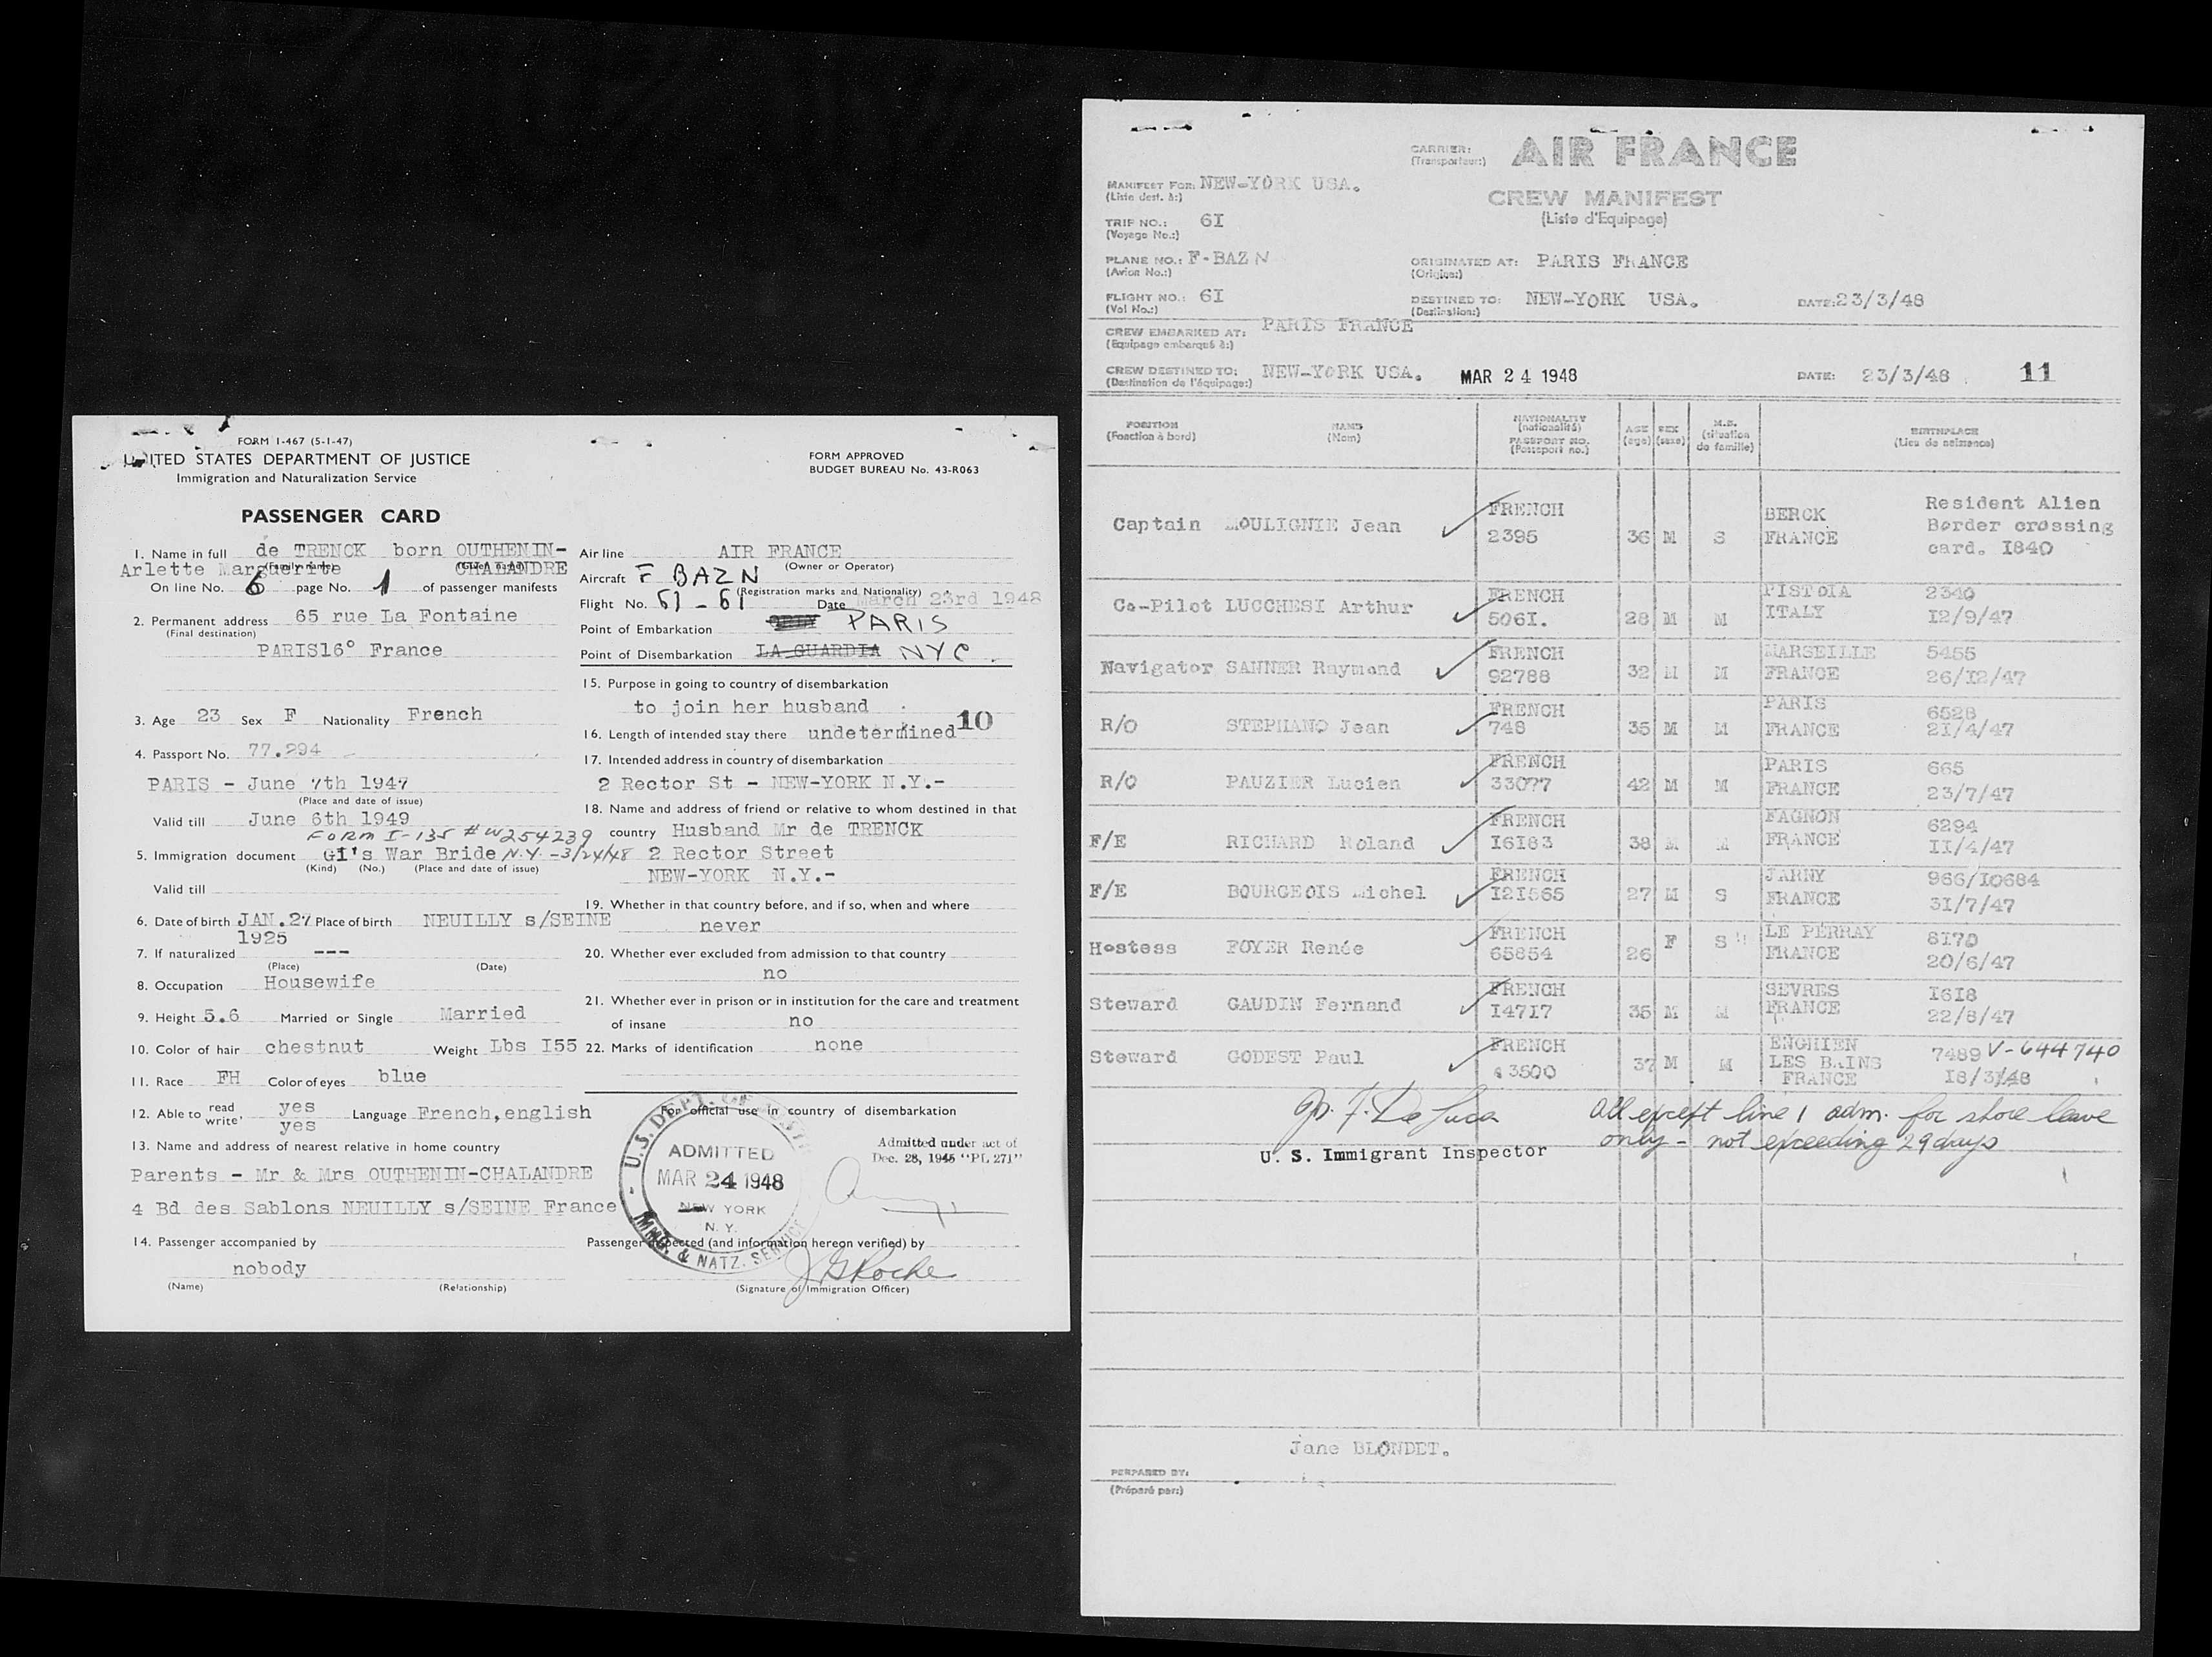 FORM I-467 (5-1-47)
UNITED STATES DEPARTMENT OF JUSTICE
Immigration and Naturalization Service
FORM APPROVED
BUDGET BUREAU No. 43-R063
PASSENGER CARD
1. Name in full de TRENCK born OUTHENIN-
Arlette Marguerite (Family name) (Given name) CHALANDRE
On line No. 6 page No. 1 of passenger manifests
2. Permanent address 65 rue La Fontaine
(Final destination)
PARIS16° France
3. Age 23 Sex F Nationality French
4. Passport No. 77.294
PARIS - June 7th 1947
(Place and date of issue)
Valid till June 6th 1949
FORM I-135 # W254239
5. Immigration document GI's War Bride N.Y. -3/24/48
(Kind) (No.) (Place and date of issue)
Valid till
6. Date of birth JAN.27 Place of birth NEUILLY s/SEINE
1925
7. If naturalized ---
(Place) (Date)
8. Occupation Housewife
9. Height 5.6 Married or Single Married
10. Color of hair chestnut Weight Lbs I55
11. Race FH Color of eyes blue
12. Able to read yes Language French,english
write, yes
13. Name and address of nearest relative in home country
Parents - Mr & Mrs OUTHENIN-CHALANDRE
4 Bd des Sablons NEUILLY s/SEINE France
14. Passenger accompanied by
nobody
(Name) (Relationship)
Air line AIR FRANCE
(Owner or Operator)
Aircraft F BAZN
(Registration marks and Nationality)
Flight No. 61 - 61 Date March 23rd 1948
Point of Embarkation ORLY PARIS
Point of Disembarkation LA GUARDIA NYC
15. Purpose in going to country of disembarkation
to join her husband
16. Length of intended stay there undetermined 10
17. Intended address in country of disembarkation
2 Rector St - NEW-YORK N.Y.-
18. Name and address of friend or relative to whom destined in that
country Husband Mr de TRENCK
2 Rector Street
NEW-YORK N.Y.-
19. Whether in that country before, and if so, when and where
never
20. Whether ever excluded from admission to that country
no
21. Whether ever in prison or in institution for the care and treatment
of insane no
22. Marks of identification none
For official use in country of disembarkation
U.S. DEPT. OF JUSTICE
ADMITTED
MAR 24 1948
NEW YORK
N. Y.
IMM. & NATZ. SERVICE
Admitted under act of
Dec. 28, 1945 "PL 271"
Passenger inspected (and information hereon verified) by
J G Roche
(Signature of Immigration Officer)
CARRIER: AIR FRANCE
(Transporteur:)
MANIFEST FOR: NEW-YORK USA.
(Liste dest. à:)
CREW MANIFEST
(Liste d'Equipage)
TRIP NO.: 6I
(Voyage No.:)
PLANE NO.: F-BAZ N
(Avion No.:)
ORIGINATED AT: PARIS FRANCE
(Origine:)
FLIGHT NO.: 6I
(Vol No.:)
DESTINED TO: NEW-YORK USA. DATE: 23/3/48
(Destination:)
CREW EMBARKED AT: PARIS FRANCE
(Equipage embarqué à:)
CREW DESTINED TO: NEW-YORK USA. MAR 24 1948 DATE: 23/3/48 11
(Destination de l'équipage:)
POSITION NAME NATIONALITY AGE SEX M.S. BIRTHPLACE
(Fonction à bord) (Nom) (nationalité) (age) (sexe) (situation de famille) (Lieu de naissance)
PASSPORT NO.
(Passeport no.)
Captain MOULIGNIE Jean FRENCH 2395 36 M S BERCK FRANCE Resident Alien Border crossing card. I840
Co-Pilot LUCCHESI Arthur FRENCH 506I. 28 M M PISTOIA ITALY 2340 I2/9/47
Navigator SANNER Raymond FRENCH 92788 32 M M MARSEILLE FRANCE 5455 26/I2/47
R/O STEPHANO Jean FRENCH 748 35 M M PARIS FRANCE 6528 2I/4/47
R/O PAUZIER Lucien FRENCH 33077 42 M M PARIS FRANCE 665 23/7/47
F/E RICHARD Roland FRENCH I6I83 38 M M FAGNON FRANCE 6294 II/4/47
F/E BOURGEOIS Michel FRENCH I2I565 27 M S JARNY FRANCE 966/I0684 3I/7/47
Hostess FOYER Renée FRENCH 65854 26 F S LE PERRAY FRANCE 8I70 20/6/47
Steward GAUDIN Fernand FRENCH I47I7 35 M M SEVRES FRANCE I6I8 22/8/47
Steward GODEST Paul FRENCH 43500 37 M M ENGHIEN LES BAINS FRANCE 7489 V-644740 I8/3/48
All except line 1 adm. for shore leave
only - not exceeding 29 days
U. S. Immigrant Inspector
Jane BLONDET.
PERPARED BY:
(Préparé par:)